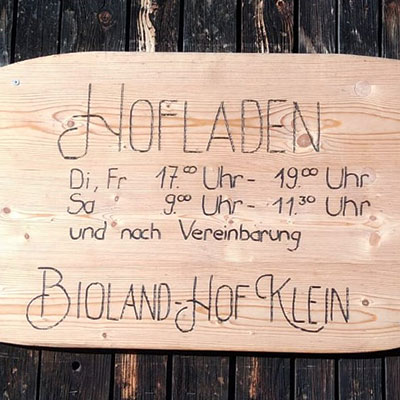 HOFLADEN
Di, Fr 17.⁰⁰ Uhr - 19.⁰⁰ Uhr
Sa 9.⁰⁰ Uhr - 11.³⁰ Uhr
und nach Vereinbarung
BIOLAND-HOF KLEIN